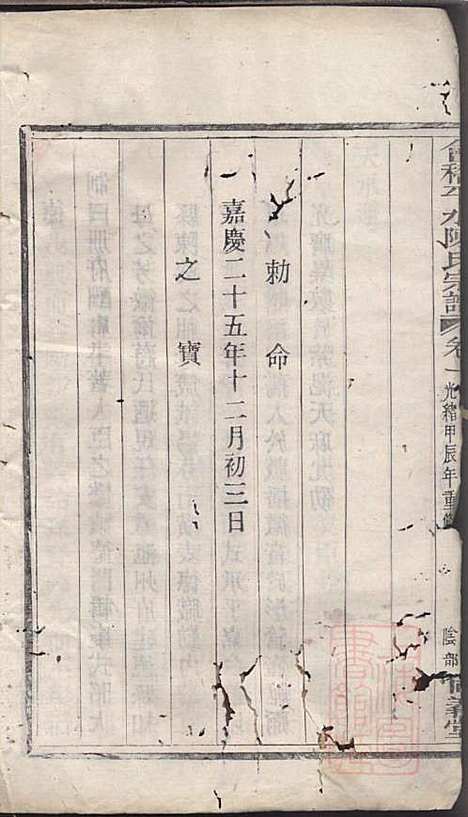 勅命
嘉慶二十五年十二月初三日
之寶
會稽平水陳氏宗譜
卷一
光緒甲辰年重修
陰部